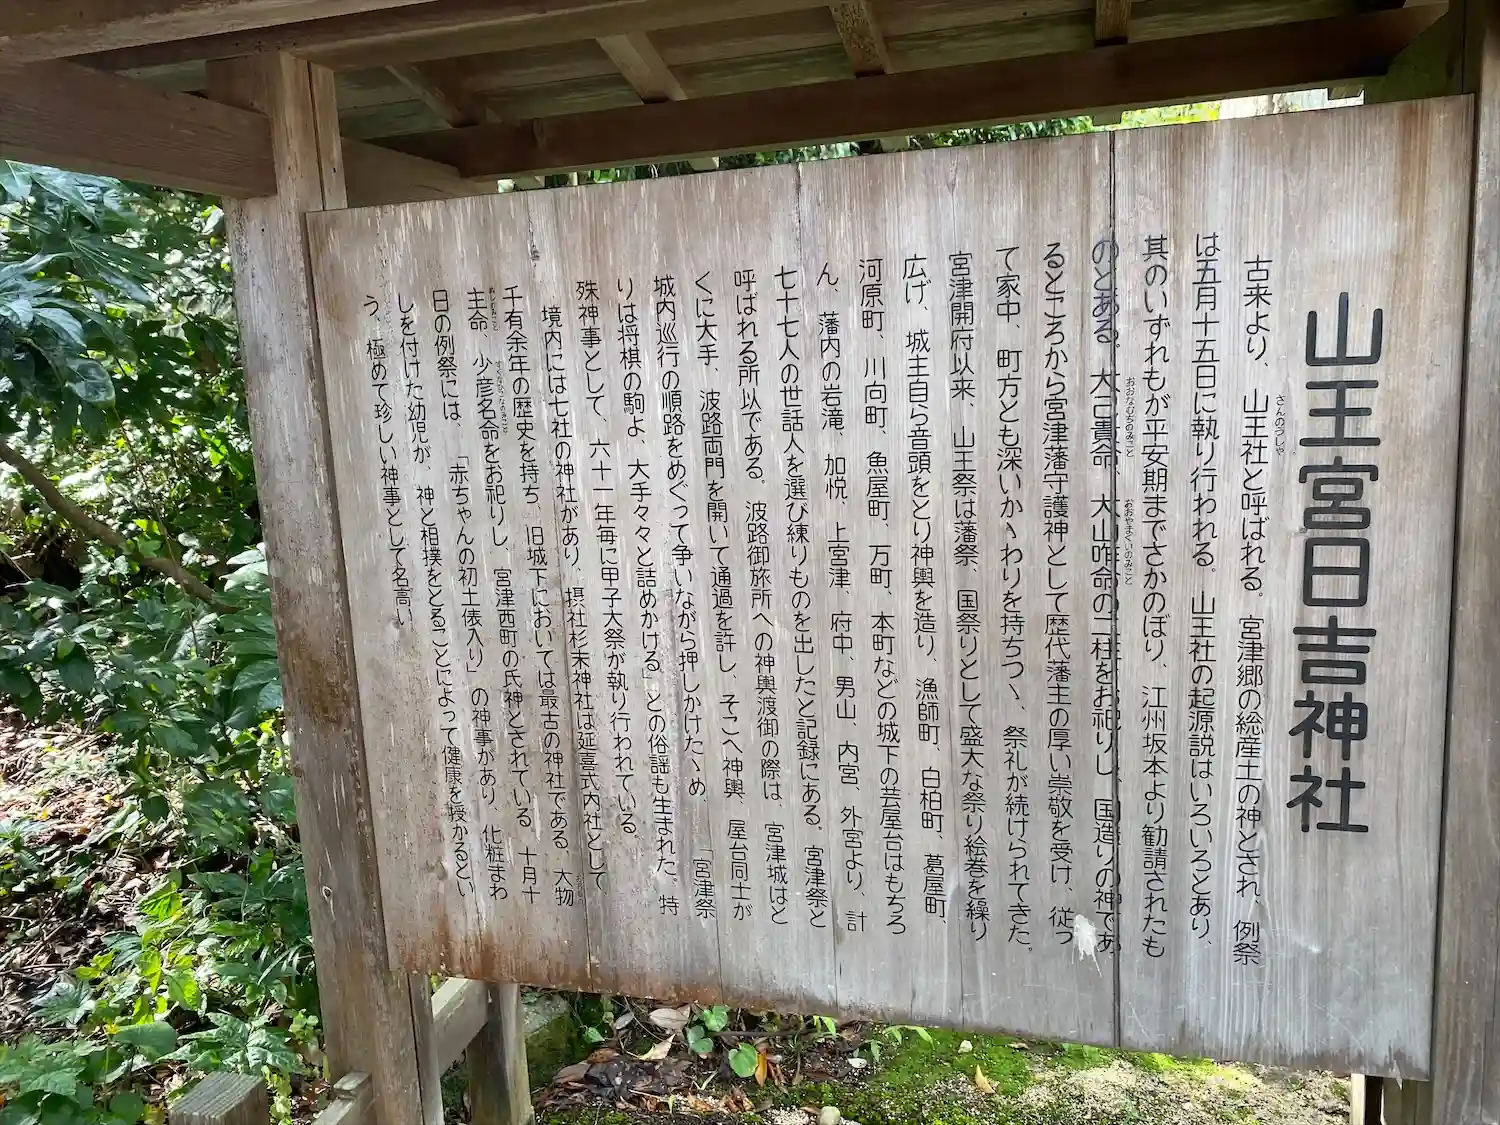 山王宮日吉神社
古来より、山王社と呼ばれる。宮津郷の総産土の神とされ、例祭
さんのうしゃ
は五月十五日に執り行われる。山王社の起源説はいろいろとあり、
其のいずれもが平安期までさかのぼり、江州坂本より勧請されたも
のとある。大己貴命、大山咋命の二柱をお祀りし、国造りの神であ
おおなむちのみこと
おおやまくいのみこと
るところから宮津藩守護神として歴代藩主の厚い崇敬を受け、従っ
て家中、町方とも深いかゝわりを持ちつゝ、祭礼が続けられてきた。
宮津開府以来、山王祭は藩祭、国祭りとして盛大な祭り絵巻を繰り
広げ、城主自ら音頭をとり神輿を造り、漁師町、白柏町、葛屋町、
河原町、川向町、魚屋町、万町、本町などの城下の芸屋台はもちろ
ん、藩内の岩滝、加悦、上宮津、府中、男山、内宮、外宮より、計
七十七人の世話人を選び練りものを出したと記録にある。宮津祭と
呼ばれる所以である。波路御旅所への神輿渡御の際は、宮津城はと
くに大手、波路両門を開いて通過を許し、そこへ神輿、屋台同士が
城内巡行の順路をめぐって争いながら押しかけたゝめ、「宮津祭
りは将棋の駒よ、大手々々と詰めかける」との俗謡も生まれた。特
殊神事として、六十一年毎に甲子大祭が執り行われている。
境内には七社の神社があり、摂社杉末神社は延喜式内社として
千有余年の歴史を持ち、旧城下においては最古の神社である。大物
主命、少彦名命をお祀りし、宮津西町の氏神とされている。十月十
ぬしのみこと
すくなひこなのみこと
日の例祭には、「赤ちゃんの初土俵入り」の神事があり、化粧まわ
しを付けた幼児が、神と相撲をとることによって健康を授かるとい
う、極めて珍しい神事として名高い。